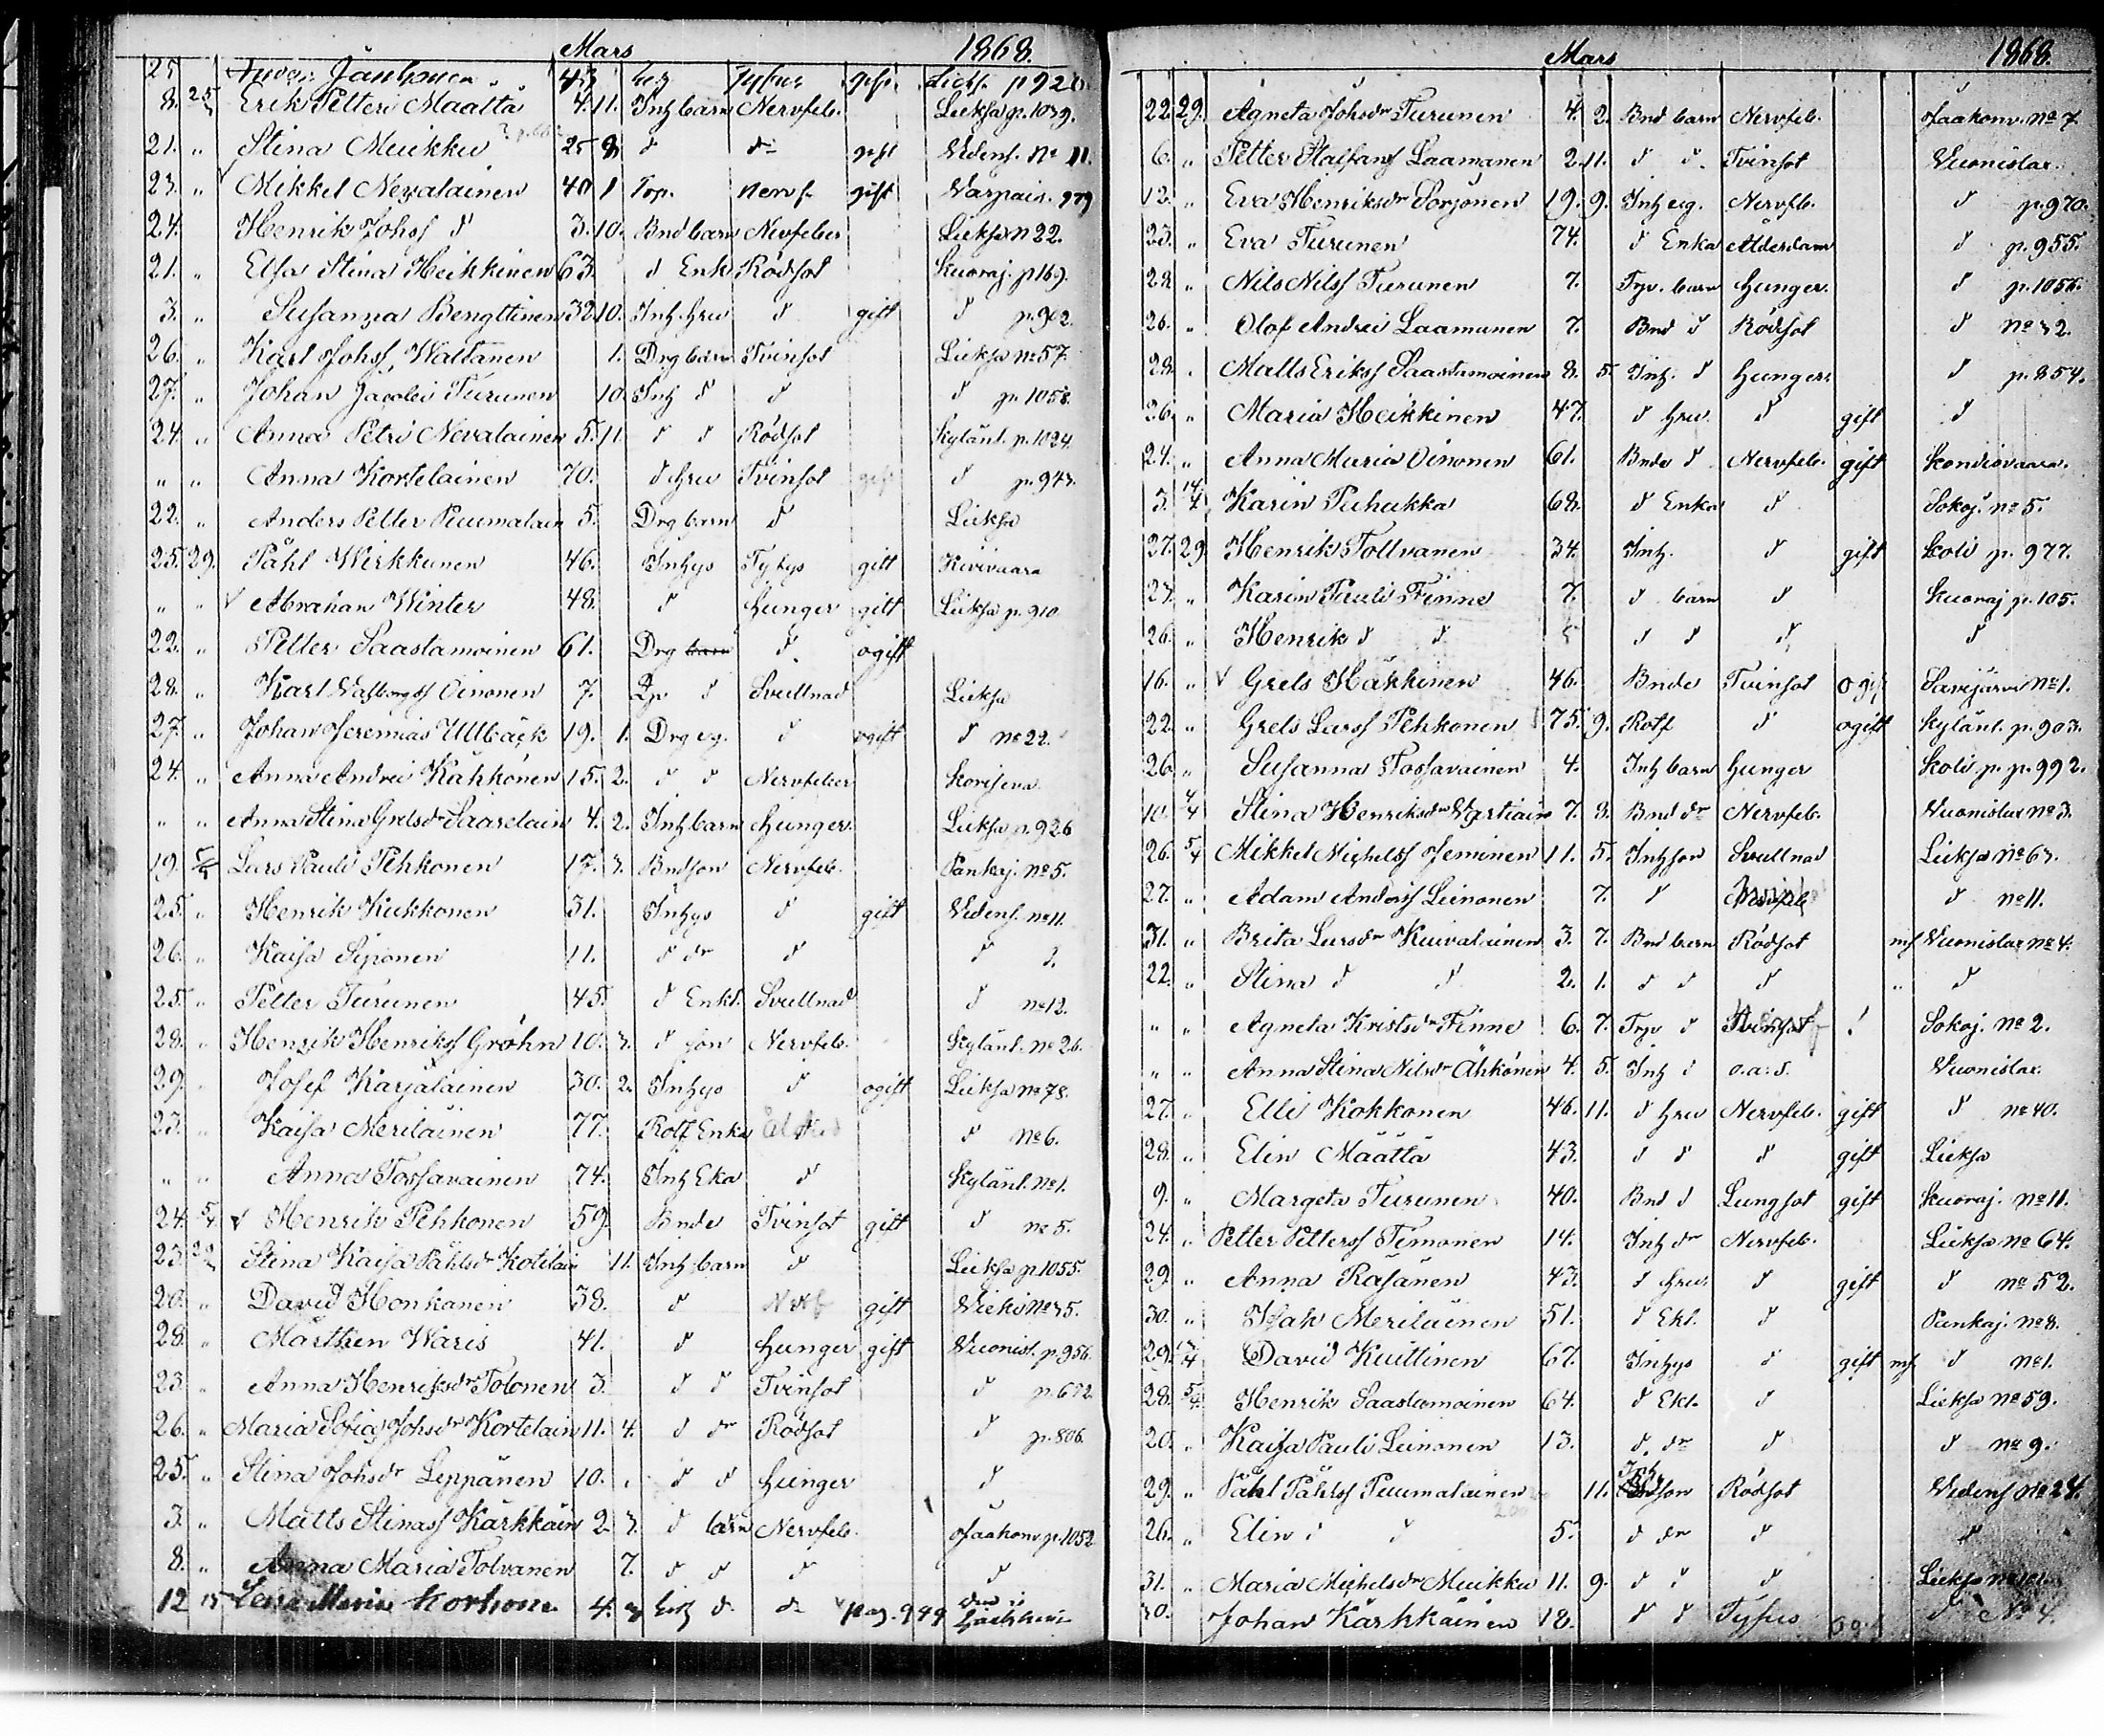 Mars 1868.
25 Jänhonen 43 Inh Tyfus gift Lieksa p 920
8. 25 Erik Petteri Määttä 4. 11. Inh barn Nervfeb. Lieksa p. 1039.
21. " Stina Muikku 25 8 d do gift Videns. No 11.
23. " Mikkel Nevalainen 40 1 Torp. nervf. gift Varpais. 979
24. Henrik Johss d 3. 10. Bnd barn Nervfeber Lieksa n 22.
21. " Elsa Stina Heikkinen 63. d Enk Rödsot Kuoraj. p 169.
3. " Susanna Bengttinen 32. 10. Inh. hru d gift d p. 902.
26. " Karl Johss Wattanen 1. Drg barn Tvinsot Lieksa No 57.
27. " Johan Jacobi Turunen 10. Inh d d d p. 1058.
24. " Anna Petri Nevalainen 5. 11. d d Rödsot Kylänl. p. 1024.
" " Anna Kortelainen 70. d hru Tvinsot gift d p. 943.
22. " Anders Petter Puumalain 5. Drg barn d Lieksa
25. 29. Påhl Wirkkunen 46. Inhys Tyfus gift Kivivaara
" " V Abraham Winter 48. d hunger gift Lieksa p. 910
22. " Petter Saastamoinen 61. Drg barn d ogift
28. " Karl Valborgss Oinonen 7. d Svullnad Lieksa
27. " Johan Jeremias Ullbäck 19. 1. Drg eg. d ogift d No 22.
24. " Anna Andrei Kähkönen 15. 2. d d Nervfeber Korisева
" " Anna Stina Gretsdr Saarelain 4. 2. Inh barn hunger Lieksa p. 926
19. 5/4 Lars Pauli Pehkonen 17. 3. Bndson Nervfeb. Pankaj. No 5.
25. " Henrik Kukkonen 31. Inhys d gift Videns. No 11.
26. " Kaisa Siponen 11. d dr d d 2.
25. " Petter Turunen 45. d Enkl. Svullnad d No 12.
28. " Henrik Henrikss Gröhn 10. 3. d son Nervfeb. Kylänl. No 26.
29. " Josef Karjalainen 30. 2. Inhys d ogift Lieksa No 78.
23. " Kaisa Meriläinen 77. Rotf Enka d No 6.
" " Anna Tossavainen 74. Inh Eka d Kylänl. No 1.
24. 5/4 V Henrik Pehkonen 59. Bnde Tvinsot gift d No 5.
23. 29 Stina Kaisa Påhlsdr Kotilain 11. Inh barn d Lieksa p 1055.
20. " David Honkanen 38. d Nervf gift Vieki No 35.
28. " Marthen Waris 41. d hunger gift Vuonisl. p. 956.
23. " Anna Henriksdr Tolonen 3. d d Tvinsot d p. 672.
26. " Maria Sofia Johsdr Kortelain 11. 4. d dr Rödsot d p. 806.
25. " Stina Johsdr Leppänen 10. d d hunger d
3. " Matts Stinass Kärkkäin 2. 3. d barn Nervfeb. Jaakonv. p. 1052
8. " Anna Maria Tolvanen 7. d d d d
12 15 Lena Maria Korhone 4. 3 Inh d. do pag. 999
Mars 1868.
22. 29. Agneta Johsdr Turunen 4. 2. Bnd barn Nervfeb. Jaakonv. No 7
6. " Petter Staffans Laamanen 2. 11. d d. Tvinsot Vuonislax.
12. " Eva Henriksdr Sorjonen 19. 9. Inh eg. Nervfb. d p. 970.
23. " Eva Turunen 74. d Enka Ålderdom d p. 955.
28. " Nils Nilss Turunen 7. Trp. barn hunger. d p. 1056.
26. " Olof Andrei Laamanen 7. Bnd d Rödsot d No 32.
28. " Matts Erikss Saastamoinen 8. 5. Inh. d hunger. d p. 854.
26. " Maria Heikkinen 47. d hru. d gift d
24. " Anna Maria Oinonen 61. Bnde d Nervfeb. gift Kondiovaara.
3. 14/4 Karin Puhakka 68. d Enka d Sokoj. No 5.
27. 29. Henrik Toltvanen 34. Inh. d gift Koli p. 977.
27. " Karin Pauli Finne 7. d barn d Kuoraj p. 105.
26. " Henrik d d 5 d d d d
16. " V Grels Häkkinen 46. Bnde Tvinsot ogif Savijärvi No 1.
22. " Grels Larss Pehkonen 75. 9. Rotf d ogift Kylänl. p. 903.
26. " Susanna Tossavainen 4. Inh barn hunger Koli p. p. 992.
10. 4/4 Stina Henriksdr Vartiain 7. 8. Bnd dr Nervfeb. Vuonislax No 3.
26. 5/4 Mikkel Michelss Jeminen 11. 5. Inhson Svullnad Lieksa No 63.
27. " Adam Anderss Leinonen 7. d d No 11.
31. " Brita Larsdr Kuivalainen 3. 7. Bnd barn Rödsot Vuonislax No 4.
22. " Stina d d 2. 1. d d d " d
" " Agneta Kristsdr Finne 6. 7. Trp d Tvinsot ! Sokoj. No 2.
" " Anna Stina Nilsdr Ähkönen 4. 5. Inh d o.a.s. Vuonislax.
27. " Elli Kokkonen 46. 11. d hru Nervfeb. gift d No 40.
28. " Elin Määttä 43. d d d gift Lieksa
9. " Margeta Turunen 40. Bnd d Lungsot gift Kuoraj. No 11.
24. " Petter Petterss Timonen 14. Inh dr Nervfeb. Lieksa No 64.
29. " Anna Räsänen 43. d hru. d gift d No 52.
30. " Isak Meriläinen 51. d Ekl. d Pankaj. No 8.
29. 7/4 David Kuittinen 67. Inhys d gift d No 1.
28. 5/4 Henrik Saastamoinen 64. d Ekl. d Lieksa No 59.
20. " Kaisa Pauli Leinonen 13. d. dr d d No 9.
29. " Påhl Påhlss Puumalainen 11. Inh son Rödsot Videns No 24.
26. " Elin d d 5. d dr d d
31. " Maria Michelsdr Muikku 11. 9. d d d Lieksa
30. Johan Kärkkäinen 18. d d Tyfus d No 4.